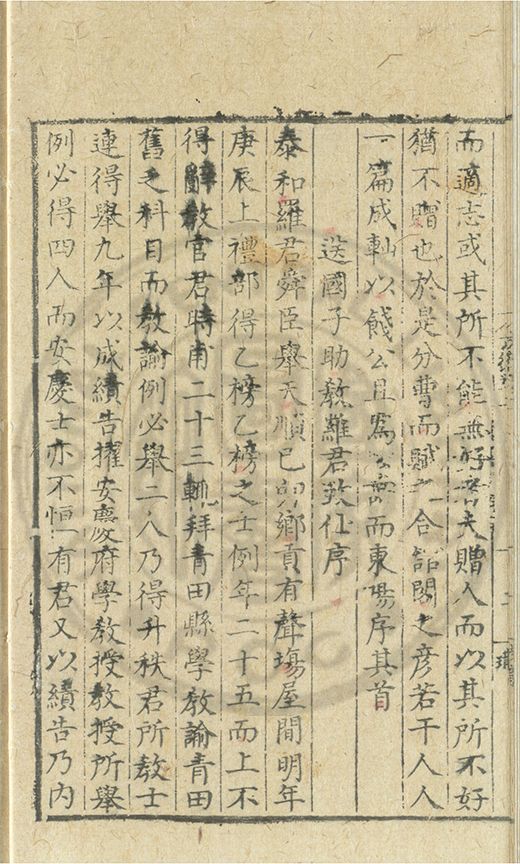 而適志或其所不能無好者夫贈人而以其所不好
猶不贈也於是分曹而賦之合館閣之彦若干人人
一篇成軸以餞公且為公壽而東陽序其首
送國子助教羅君致仕序
泰和羅君舜臣舉天順己卯鄉貢有聲塲屋間明年
庚辰上禮部得乙榜乙榜之士例年二十五而上不
得辭教官君時甫二十三輒拜青田縣學教諭青田
舊乏科目而教諭例必舉二人乃得升秩君所教士
連得舉九年以成績告擢安慶府學教授教授所舉
例必得四人而安慶士亦不恒有君又以績告乃内